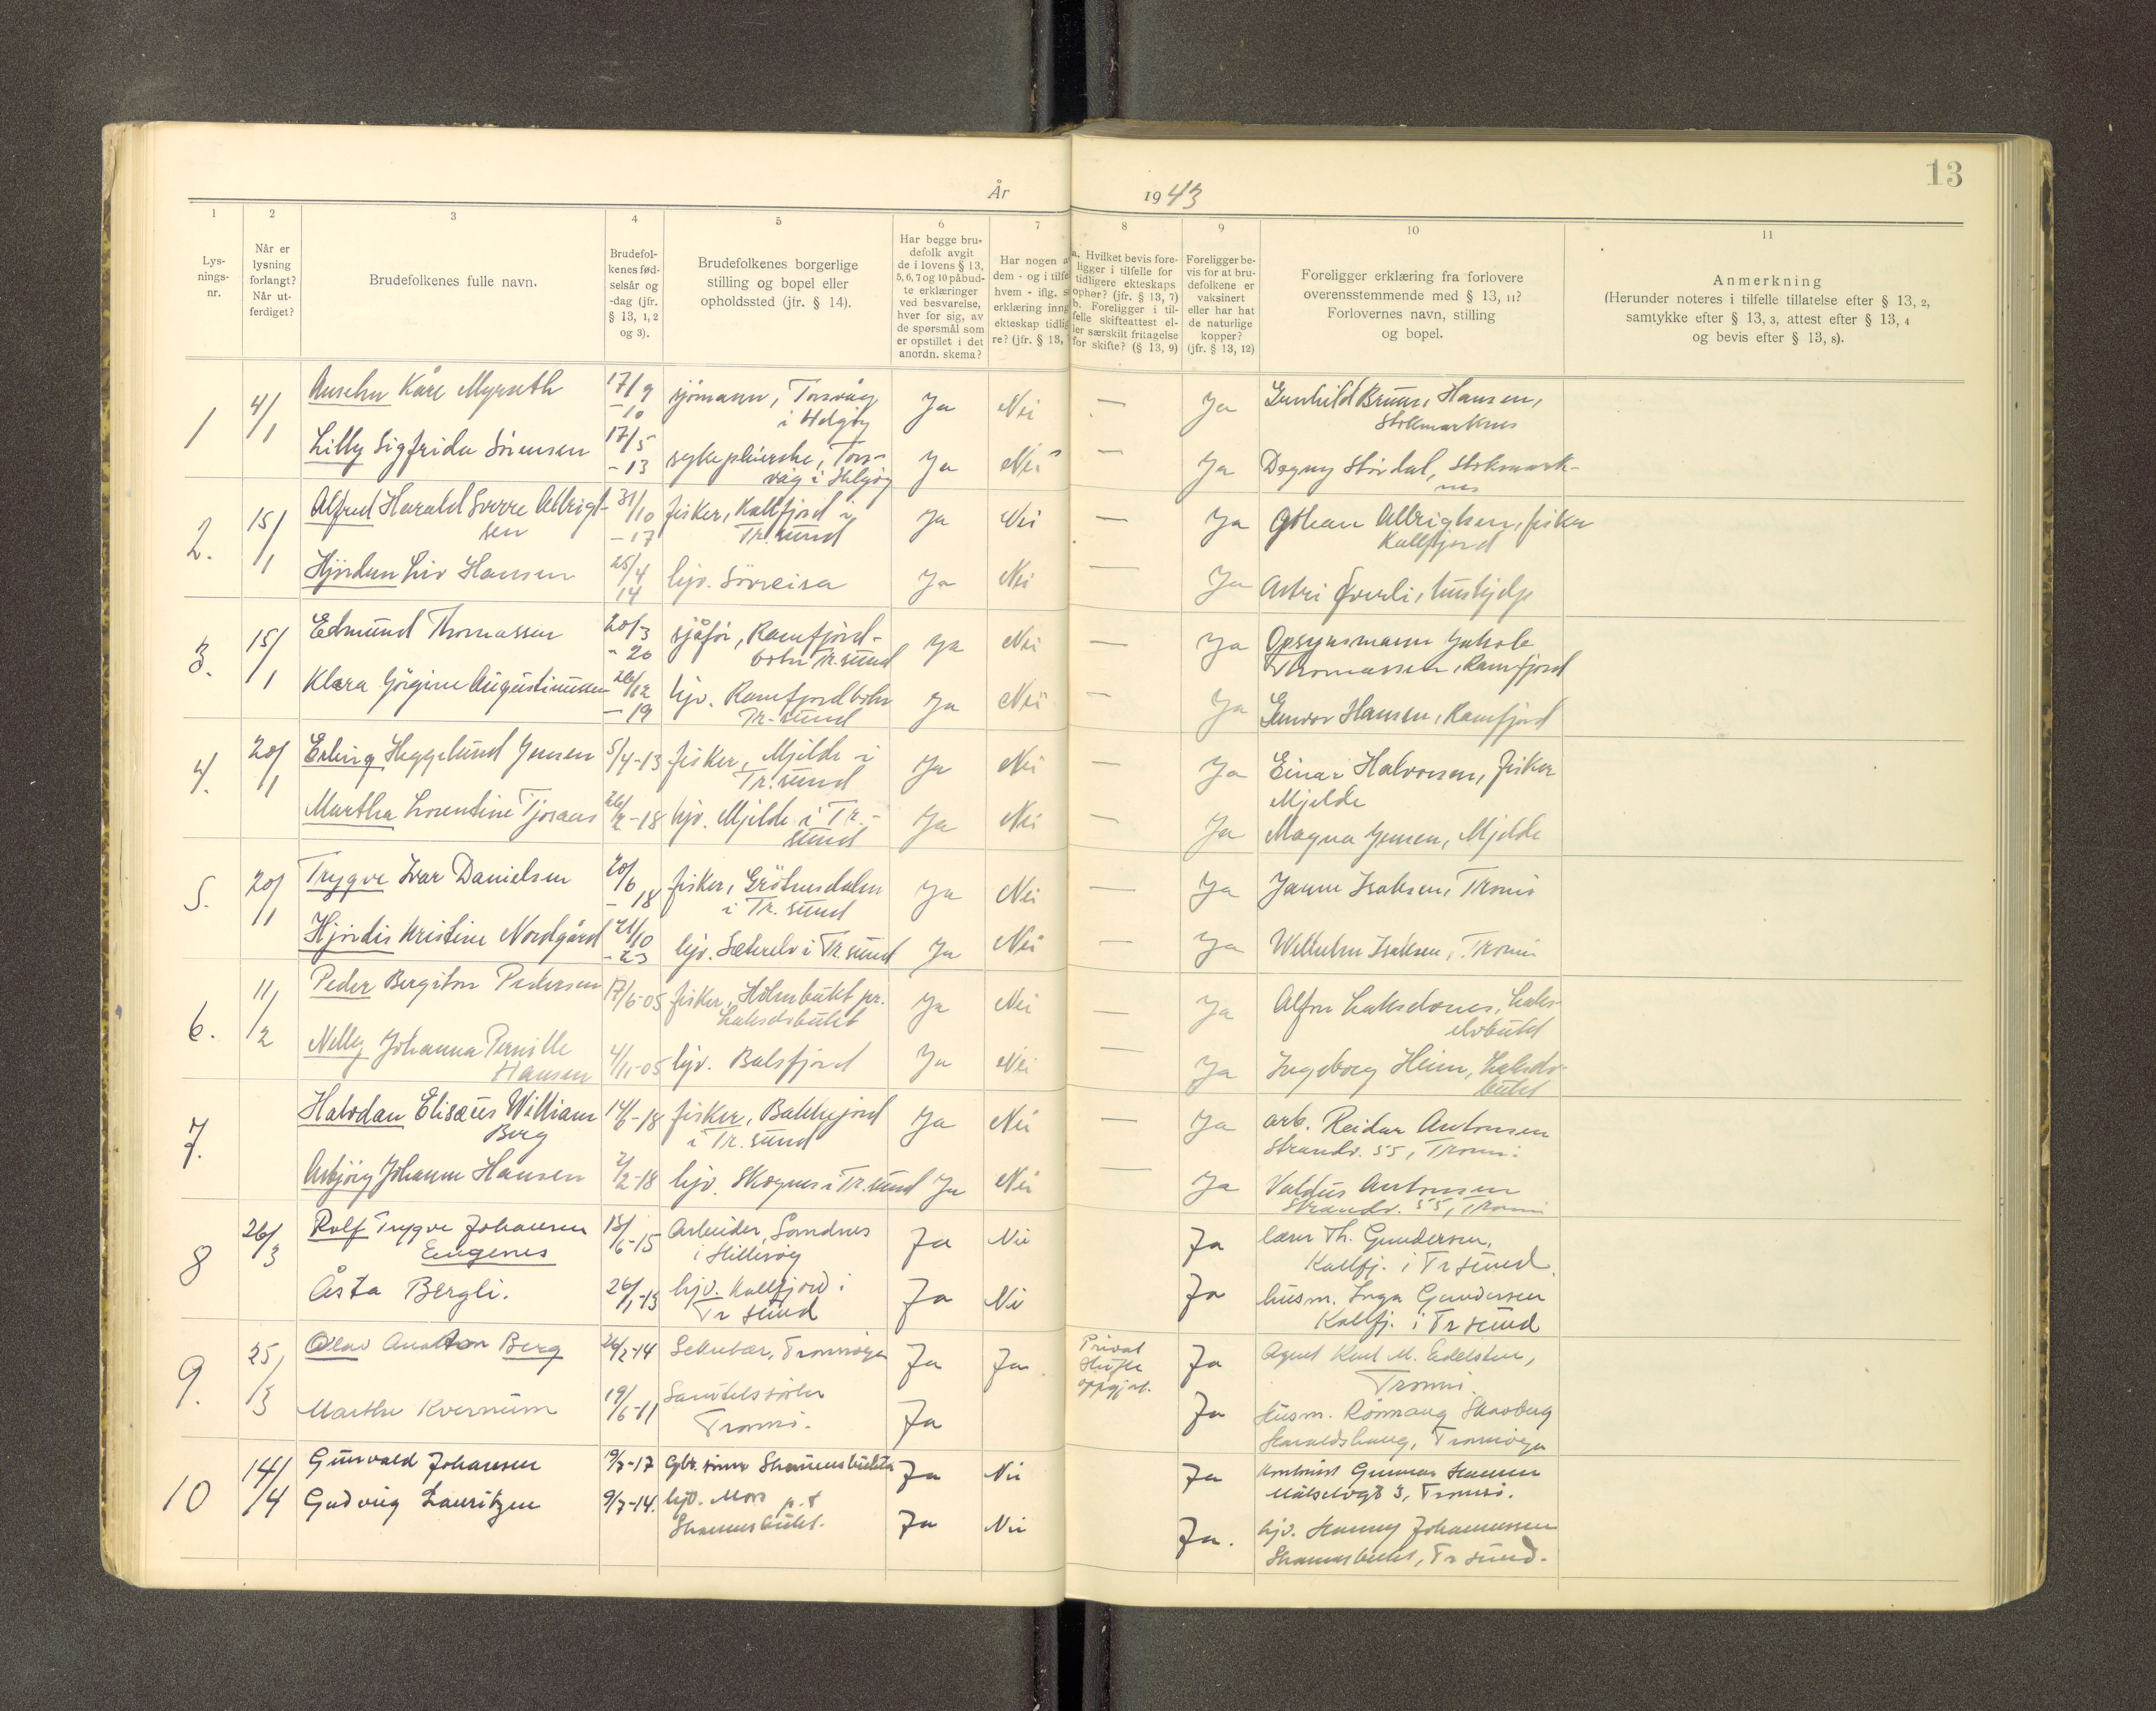 13
År 1943
1 2 3 4 5 6 7 8 9 10 11
Lys-
nings-
nr.
Når er
lysning
forlangt?
Når ut-
ferdiget?
Brudefolkenes fulle navn.
Brudefol-
kenes fød-
selsår og
-dag (jfr.
§ 13, 1, 2
og 3).
Brudefolkenes borgerlige
stilling og bopel eller
opholdssted (jfr. § 14).
Har begge bru-
defolk avgit
de i lovens § 13,
5, 6, 7 og 10 påbud-
te erklæringer
ved besvarelse,
hver for sig, av
de spørsmål som
er opstillet i det
anordn. skema?
Har nogen a
dem - og i tilfe
hvem - iflg. s
erklæring inng
ekteskap tidlig
re? (jfr. § 13,
a. Hvilket bevis fore-
ligger i tilfelle for
tidligere ekteskaps
ophør? (jfr. § 13, 7)
b. Foreligger i til-
felle skifteattest el-
ler særskilt fritagelse
for skifte? (§ 13, 9)
Foreligger be-
vis for at bru-
defolkene er
vaksinert
eller har hat
de naturlige
kopper?
(jfr. § 13, 12)
Foreligger erklæring fra forlovere
overensstemmende med § 13, 11?
Forlovernes navn, stilling
og bopel.
Anmerkning
(Herunder noteres i tilfelle tillatelse efter § 13, 2,
samtykke efter § 13, 3, attest efter § 13, 4
og bevis efter § 13, 8).
1 4/1 Anselm Kåre Myrseth 17/9 -10 sjömann, Torsvåg i Helgöy Ja Nei — Ja Gunhild Bruun Hansen, Stokmarknes
Lilly Sigfrida Sörensen 17/5 -13 sykepleierske, Tors-
våg i Helgöy Ja Nei — Ja Dagny Stördal, Stokmark-
nes
2. 15/1 Alfred Harald Sverre Albrigt-
sen 31/10 -17 fisker, Kallfjord i
Tr.sund Ja Nei — Ja Albrigtsen, fisker
Kallfjord
Hjördun Liv Hansen 25/4 14 hjv. Sörreisa Ja Nei — Ja Astri Överli, hushjelp
3. 15/1 Edmund Thomassen 20/3 -20 sjåför, Ramfjord-
botn Tr.sund Ja Nei — Ja Opsynsmann Jakob
Thomassen, Ramfjord
Klara Görgine Augustinussen 26/12 -19 hjv. Ramfjordbotn
Tr.sund Ja Nei — Ja Gunvor Hansen, Ramfjord
4. 20/1 Erling Heggelund Jensen 5/4-13 fisker, Mjelde i
Tr.sund Ja Nei — Ja Einar Halvorsen, fisker
Mjelde
Martha Lorentine Tjoraas 26/2-18 hjv. Mjelde i Tr.-
sund Ja Nei — Ja Magna Jensen, Mjelde
5. 20/1 Trygve Ivar Danielsen 20/6 -18 fisker, Grötnesdalen
i Tr.sund Ja Nei — Ja Isaksen, Tromsö
Hjördis Kristine Nordgård 21/10 -23 hjv. Sæterelv i Tr.sund Ja Nei — Ja Wilhelm Isaksen, Tromsö
6. 11/2 Peder Bergiton Pedersen 17/6-05 fisker, Holmbukt pr.
Lakselvbukt Ja Nei — Ja Alfon Lakselvnes, Laks-
elvbukt
Nelly Johanna Pernille
Hansen 4/11-05 hjv. Balsfjord Ja Nei — Ja Ingeborg Heim, Lakselv-
bukt
7. Halvdan Elisæus William
Berg 14/6-18 fisker, Bakkejord
i Tr.sund Ja Nei — Ja arb. Reidar Antonsen
Strandv. 55, Tromsö.
Asbjörg Johanne Hansen 2/2-18 hjv. Skognes i Tr.sund Ja Nei — Ja Valdus Antonsen
Strandv. 55, Tromsö
8 26/3 Rolf Trygve Johansen
Eugenes 15/6-15 Arbeider, Sandnes
i Hillesöy Ja Nei Ja lærer Th. Gundersen,
Kallfj. i Tr sund.
Åsta Bergli. 26/1-13 hjv. Kallfjord i
Tr sund Ja Nei Ja husm. Inga Gundersen
Kallfj. i Tr sund
9. 25/3 Olav Anathon Berg 26/2-14 Sekretær, Tromsöya Ja Ja. Privat
skifte
oppgjort. Ja Agent Karl M. Edelsten,
Tromsö.
Marthe Kvernum 19/6-11
Tromsö. Ja Ja Husm. Rönnaug Skavberg
Haraldshaug, Tromsöya
10 14/4 Gunvald Johansen 19/7-17 Gbr. sönn Skavnsbukta Ja Nei Ja Kontorist Gunnar Hansen
Målselvgt 3, Tromsö.
Gudveig Lauritzen 9/7-14. hjv. Mors p.t
Ja Nei Ja. hjv. Hanny Johannessen
Tr sund.